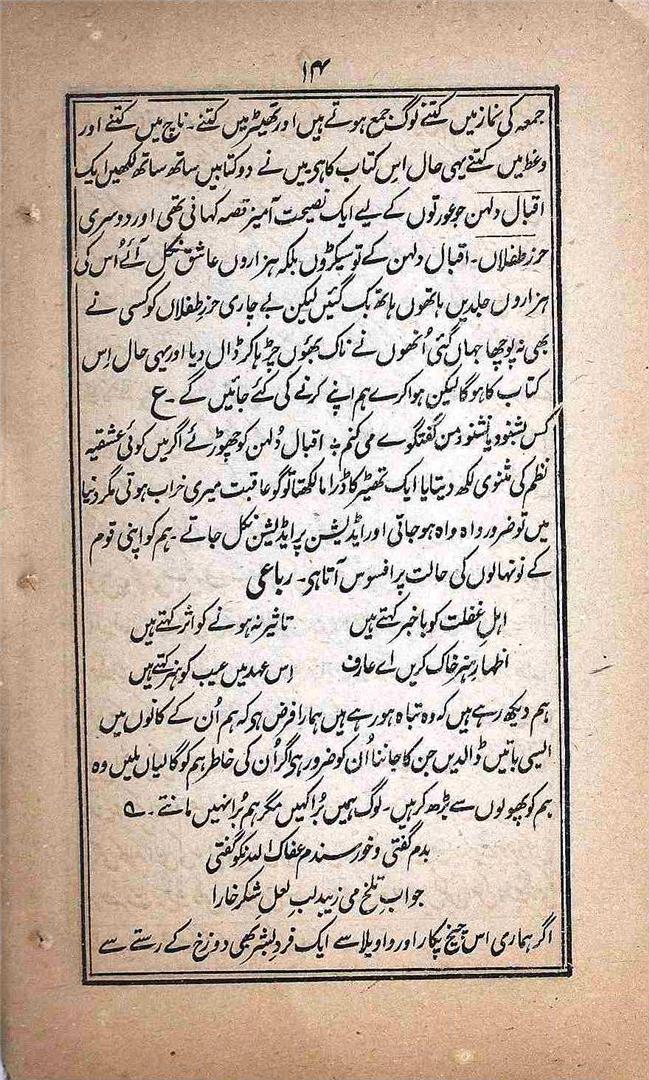 ۱۴
جمعہ کی نماز میں کتنے لوگ جمع ہوتے ہیں اور تھیٹر میں کتنے۔ ناچ میں کتنے اور
وعظ میں کتنے یہی حال اس کتاب کا ہی میں نے دو کتابیں ساتھ ساتھ لکھیں ایک
اقبال دلہن جو عورتوں کے لیے ایک نصیحت آمیز قصہ کہانی تھی اور دوسری
حرز طفلاں۔ اقبال دلہن کے تو سیکڑوں بلکہ ہزاروں عاشق نکل آئے اُس کی
ہزاروں جلدیں ہاتھوں ہاتھ بک گئیں لیکن بے چاری حرز طفلاں کو کسی نے
بھی نہ پوچھا جہاں گئی اُنھوں نے ناک بھؤں چڑہا کر ڈال دیا اور یہی حال اِس
کتاب کا ہو گا لیکن ہوا کرے ہم اپنے کرنے کی کئے جائیں گے۔ ع
کس بشنود یا نشنود من گفتگوے می کنم ؞ اقبال دُلہن کو چھوڑئے اگر میں کوئی عشقیہ
نظم کی مثنوی لکھ دیتا یا ایک تھیٹر کا ڈراما لکھتا تو گو عاقبت میری خراب ہوتی مگر دنیا
میں تو ضرور واہ واہ ہو جاتی اور ایڈیشن پر ایڈیشن نکل جاتے۔ ہم کو اپنی قوم
کے نونہالوں کی حالت پر افسوس آتا ہی۔ رباعی
اہلِ غفلت کو باخبر کہتے ہیں تاثیر نہ ہونے کو اثر کہتے ہیں
اظہارِ ہنر خاک کریں اے عارف اس عہد میں عیب کو ہنر کہتے ہیں
ہم دیکھ رہے ہیں کہ وہ تباہ ہو رہے ہیں ہمارا فرض ہی کہ ہم اُن کے کانوں میں
ایسی باتیں ڈالدیں جن کا جاننا اُن کو ضرور ہی اگر اُن کی خاطر ہم کو گالیاں ملیں وہ
ہم کو پھولوں سے بڑھ کر ہیں۔ لوگ ہمیں بُرا کہیں مگر ہم بُرا نہیں مانتے۔
بدم گفتی و خورسندم عفاک اللہ نکو گفتی
جوابِ تلخ می زیبد لبِ لعلِ شکر خارا
اگر ہماری اس چیخ پکار اور واویلا سے ایک فردِ بشر بھی دوزخ کے رستے سے